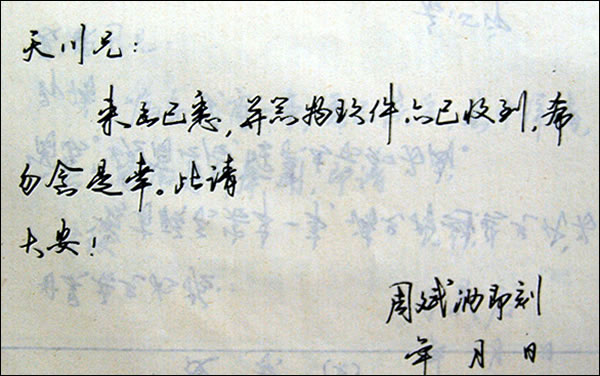 天川兄：
来函已悉，并思扬珍件亦已收到，希
勿念是幸。此请
大安！
周斌泐即刻
年 月 日